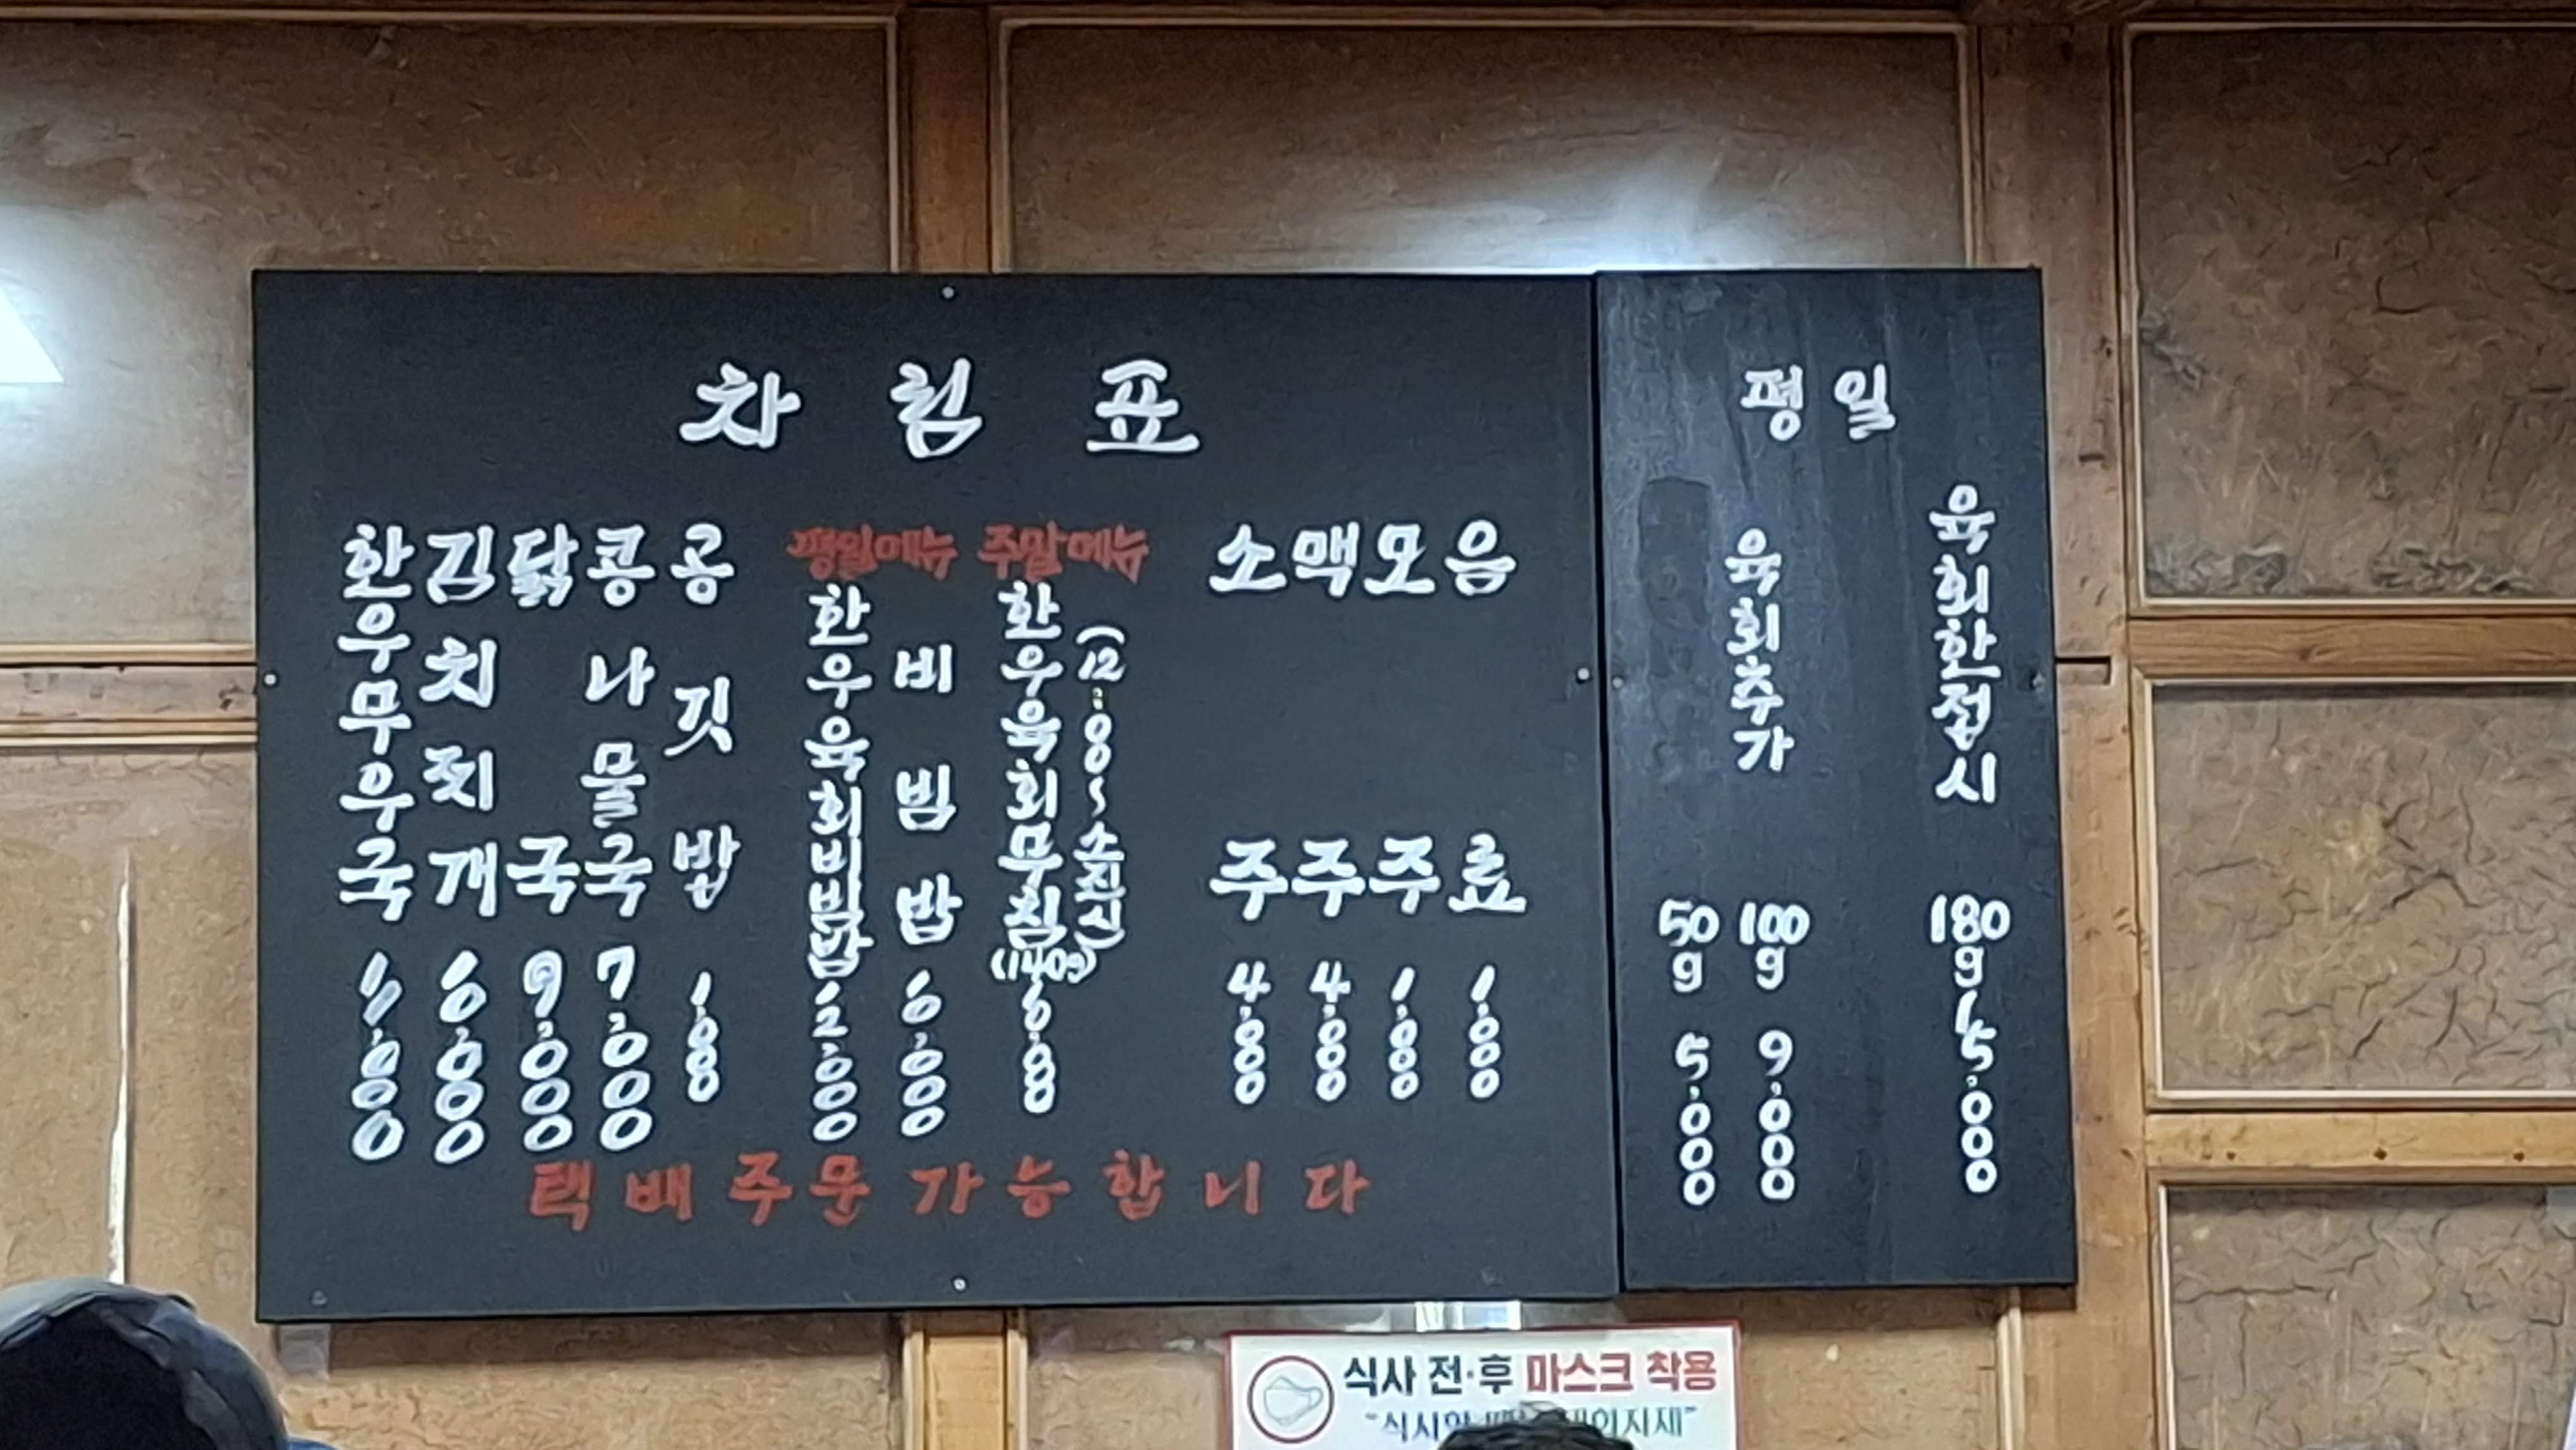 차림표
한우무우국
김치찌개
닭국 9,000
콩나물국 7,000
공깃밥 1,000
평일메뉴
한우육회비빔밥 12,000
비빔밥
주말메뉴
한우육회무침(140g)
(12:00~소진시)
소주 4,000
맥주 4,000
모주 1,000
음료 1,000
택배주문가능합니다
평일
육회추가
50g 5,000
100g 9,000
육회한접시 180g 15,000
식사 전·후 마스크 착용